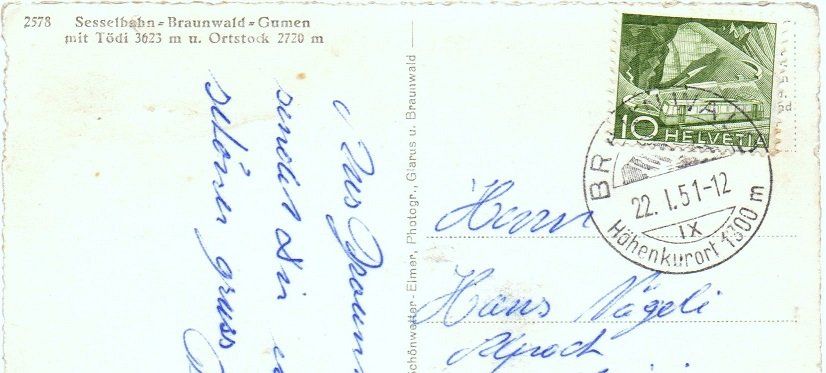 2578 Sesselbahn-Braunwald-Gumen
mit Tödi 3623 m u. Ortstock 2720 m
Aus Braun
sendet Dir
schöner gruss
Schönwetter-Elmer, Photogr., Glarus u. Braunwald
10 HELVETIA
BRAUNWALD
22. I. 51-12
IX
Höhenkurort 1300 m
Herrn
Hans Vögeli